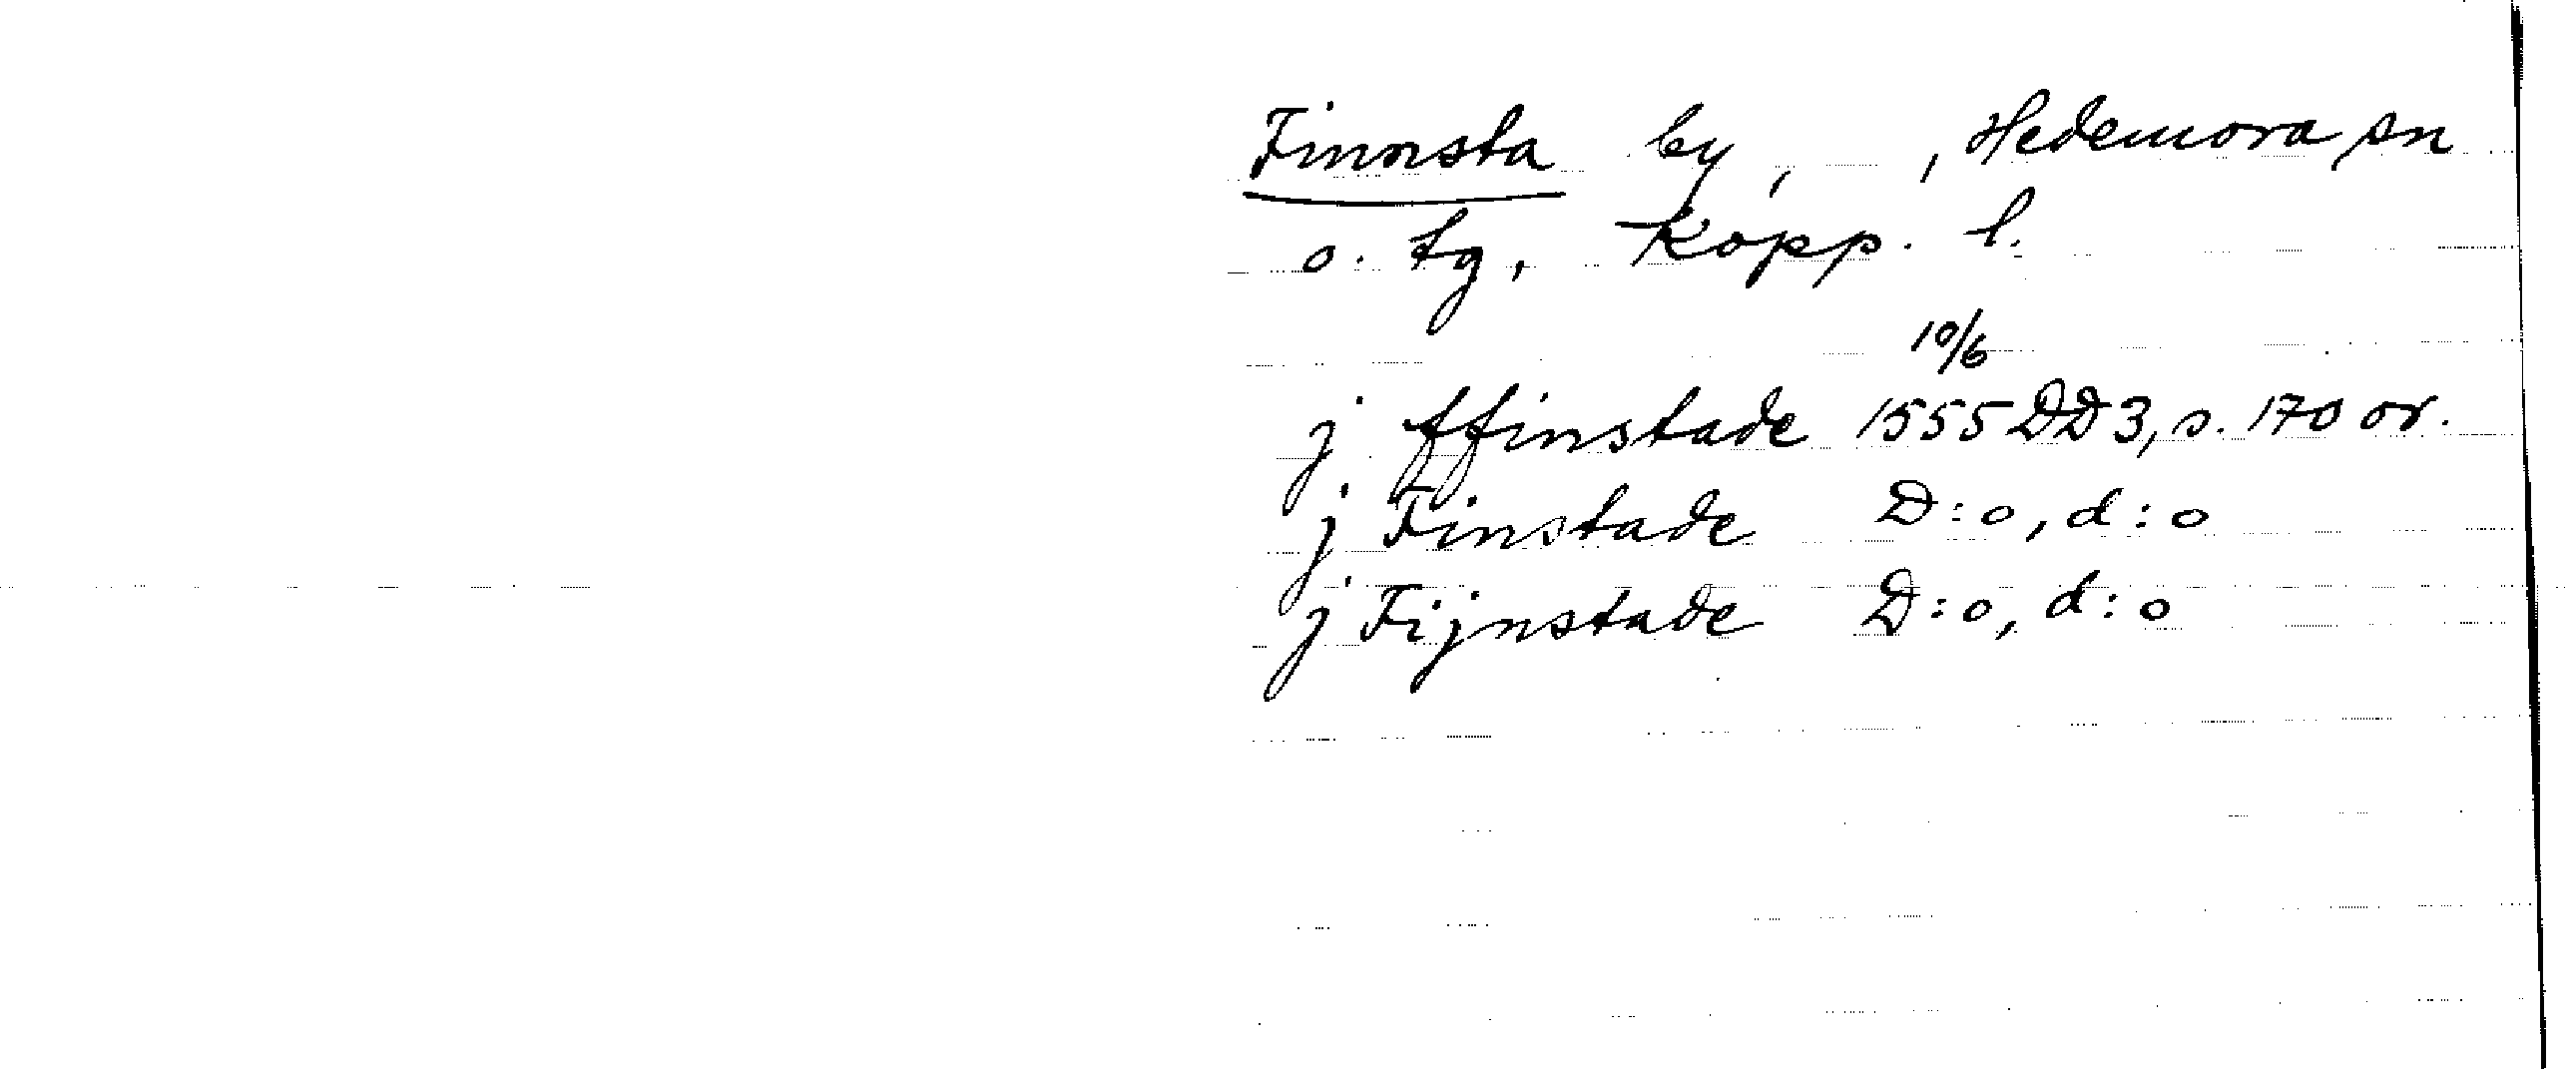 Finnsta by, , Hedemora sn
o. tg, Kopp. l.
10/6
j ffinstade 1555 DD3, s. 170 or.
j Finstade D:o, d:o
j Fijnstade D:o, d:o